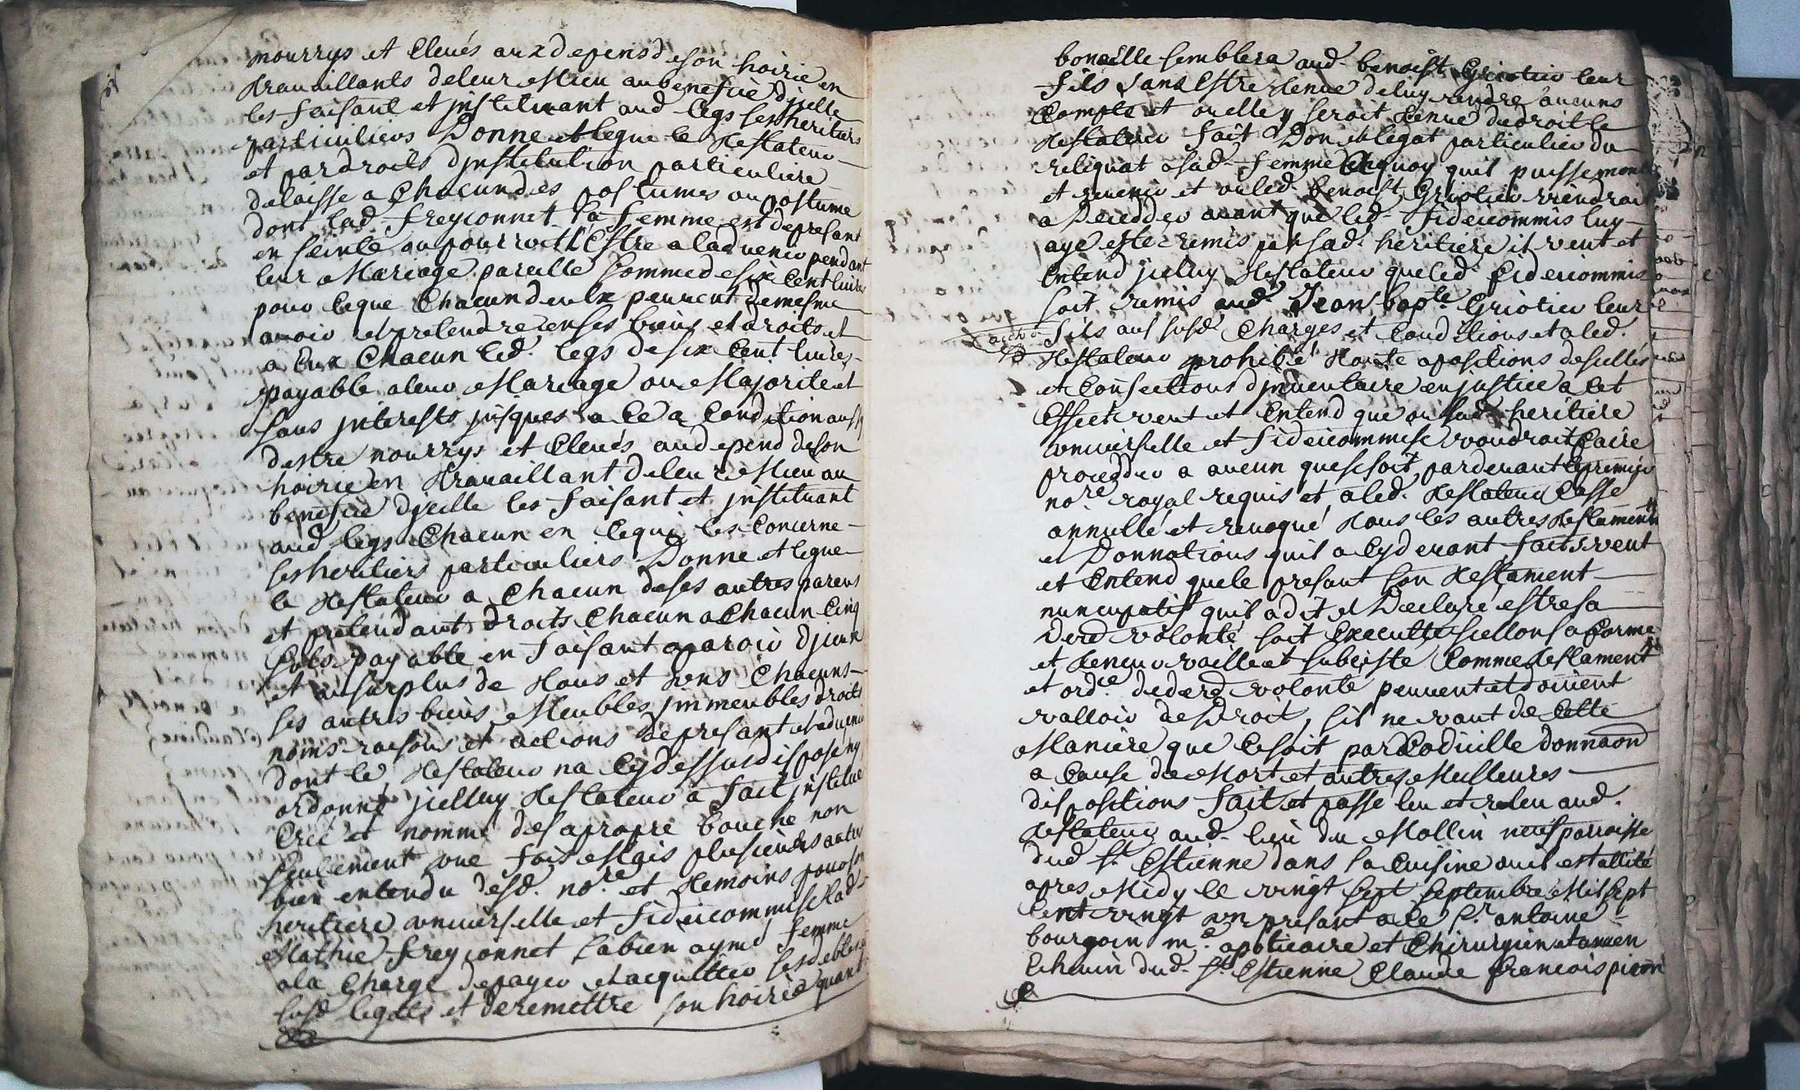 nourrys et Elevés aux depens de son hoirie en
travaillants de leur mestier au benefice d'jcelle
les faisant et jnstituant aud. legs ses heritiers
particuliers Donne et legue le testateur
et par droits d'jnstitution particuliere
delaisse a Chacun des postumes ou postume
dont lad. freyconnet sa femme est de presant
en seinte ou pourroit Estre a ladvenir pendant
leur Mariage pareille somme de six Cent livres
pour ce que Chacun deulx peuvent de mesme
avoir et pretendre en ses biens et droits et
a eux Chacun led. legs de six Cent livres
payable a leur Mariage ou Majorité et
sans jnterests jusques a Ce a Condition aussy
destre nourrys et Elevés aud depend de son
hoirie en travaillant de leur Mestier au
benefice d'jcelle les faisant et jnstituant
aud. legs Chacun en Ce qui les Concerne
ses heritiers particuliers Donne et legue
le testateur a Chacun de ses autres parens
et pretendants droits Chacun a Chacun Cinq
sols payable en faisant aparoir d'jceux
et au surplus de tous et uns Chacuns
ses autres biens Meubles jmmeubles droits
noms raisons et actions de presant et advenir
dont le testateur na Cy dessus disposé ny
ordonné jcelluy testateur a fait jnstitué
Créé et nommé de sa propre bouche non
seulement une fois Mais plusieurs autres
bien entendu desd. nore et temoins pour son
heritiere universelle et fideicommise lad.
Mathie freyconnet sa bien aymé femme
a la Charge de payer et acquitter ses debtes
susd legats et de remettre son hoirie quand
bon elle semblera aud. benoist Griotier leur
fils sans Estre tenue de luy rendre aucuns
Compte et ou elle y seroit tenue de droit le
testateur fait Don et legat particulier du
reliquat a sad. femme a quoy quil puisse monter
et revenir et ou led. benoist Griotier viendroit
a Decedder avant que led. fideicommis luy
aye este remis par sad. heritiere il veut et
Entend jcelluy testateur que led. fideicommis
soit remis aud. Jean bapte Griotier leur
fils aux susd. Charges et Conditions et a led.
testateur prohibé toute apositions de scellés
et Confections d'jnventaire en justice a Cet
Effect veut et Entend que ou sad. heritiere
universelle et fideicommise voudroit faire
proceder a aucun que se soit par devant le premier
nore royal requis et a led. testateur Cassé
annullé et revoqué tous les autres testaments
et Donnations quil a Cy devant faits veut
et Entend que le presant son testament
nuncupatif quil a dit et Declaré estre sa
derd volonté soit Executté sellon sa forme
et teneur vaille et subciste Comme testament
et ordce de dere volonté peuvent et doivent
valloir de Droit, sil ne vaut de Cette
Maniere que Ce soit par Codicille donnaon
a Cause de Mort et autres Meilleures
dispositions fait et passe leu et releu aud.
testateur aud. lieu du Mollin neuf parroisse
dud St. Estienne dans sa Cuisine ou il est allité
apres Midy le vingt sept septembre Mil sept
Cent vingt un presant a Ce Sr. antoine
bourgoin me. apoticaire et Chirurgien et ancien
Echevin dud. St Estienne Claude francois picon